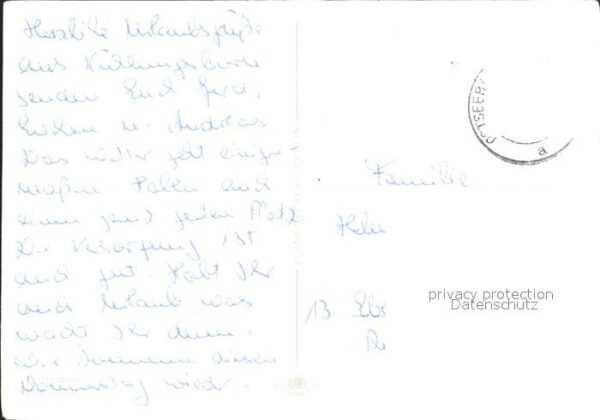 Herzliche Urlaubsgrüße
aus Kühlungsborn
senden Euch Gerd,
u. Andreas
Das Wetter geht einiger
maßen. Haben auch
einen ganz guten Platz
Die Versorgung ist
auch gut. Habt Ihr
auch Urlaub was
macht Ihr denn.
Wir kommen diesen
Donnerstag wieder.
OSTSEEB
a
Familie
13
privacy protection
Datenschutz